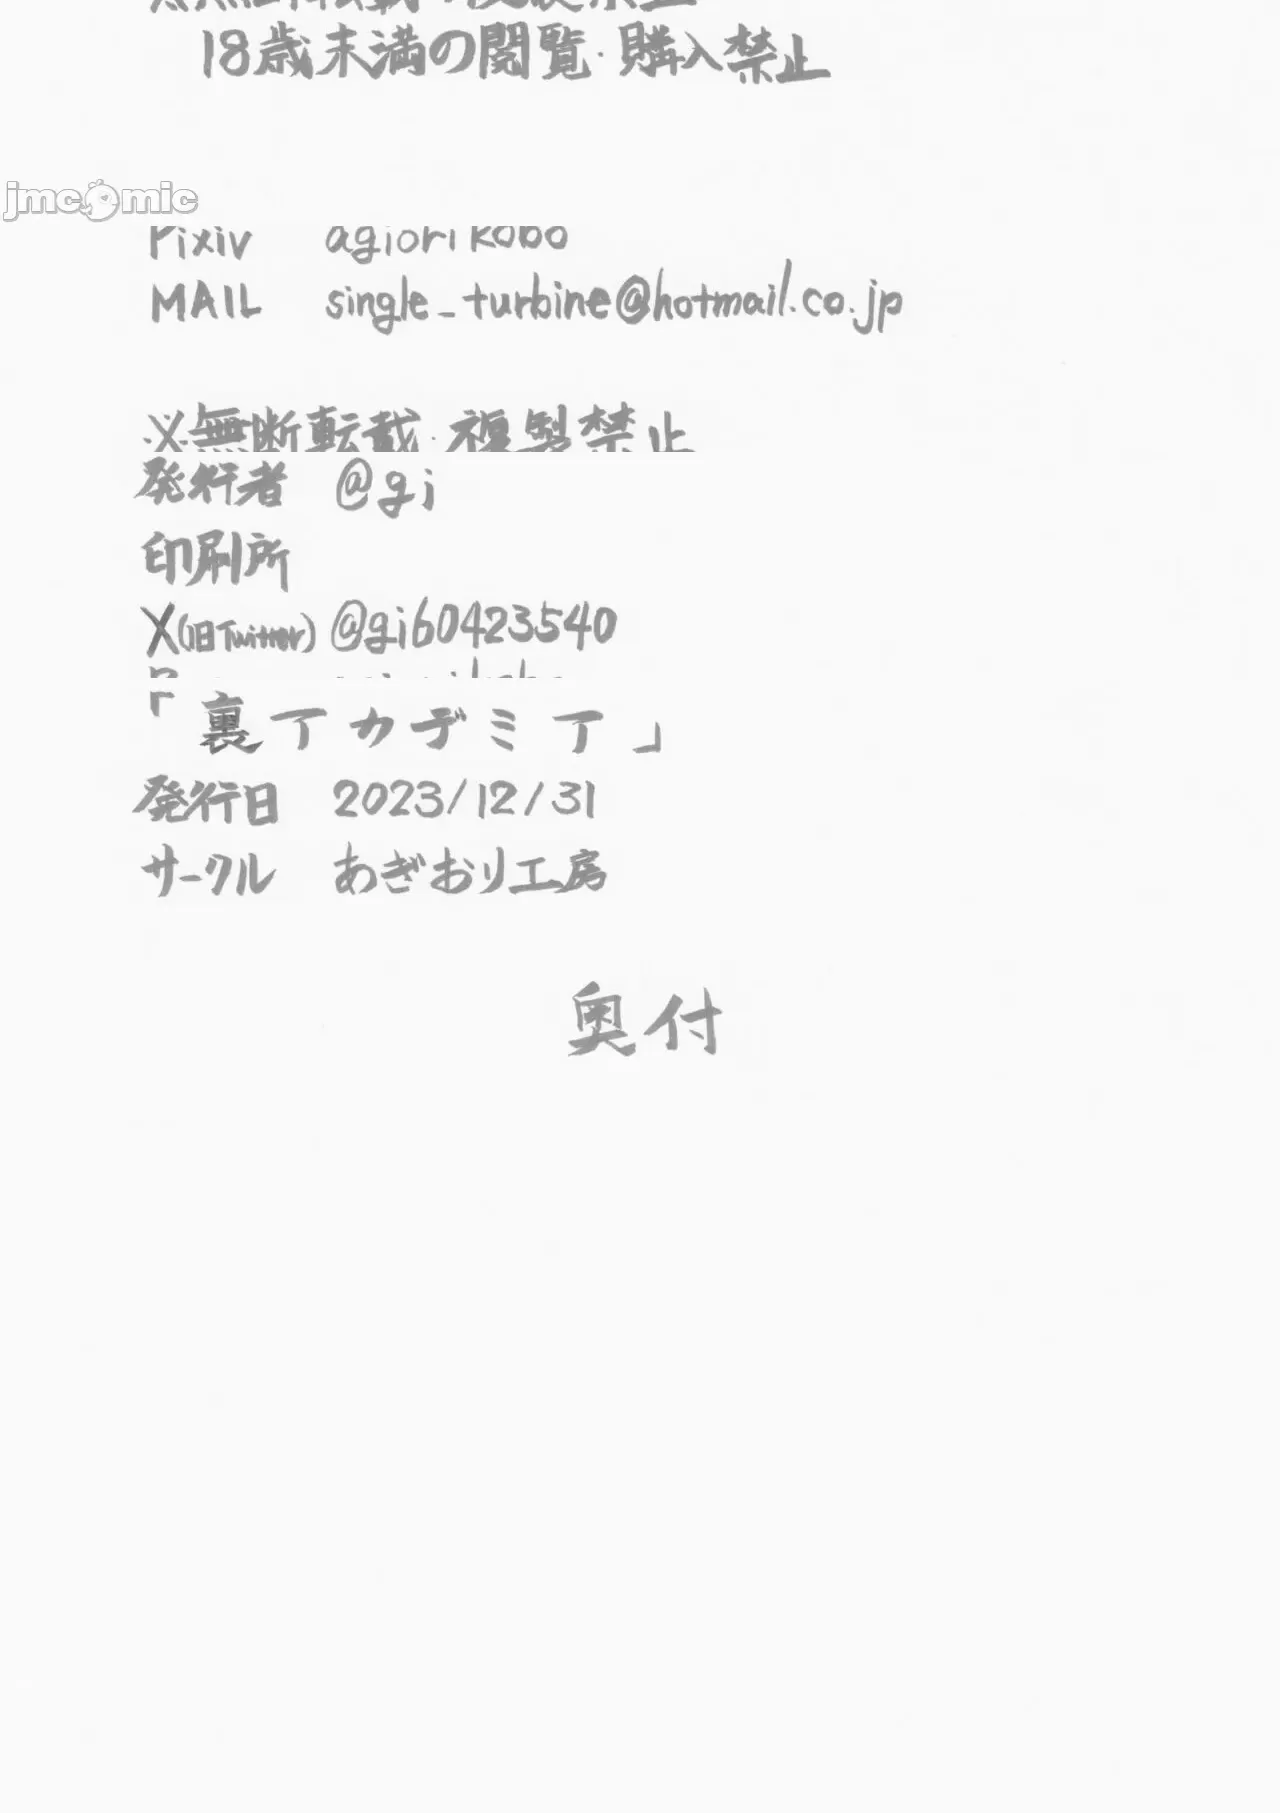 18歳未満の閲覧・購入禁止
jmcomic
Pixiv agiorikobo
MAIL single_turbine@hotmail.co.jp
※無断転載・複製禁止
発行者 @gi
印刷所
X(旧Twitter) @gi60423540
「裏アカデミア」
発行日 2023/12/31
サークル あぎおり工房
奥付